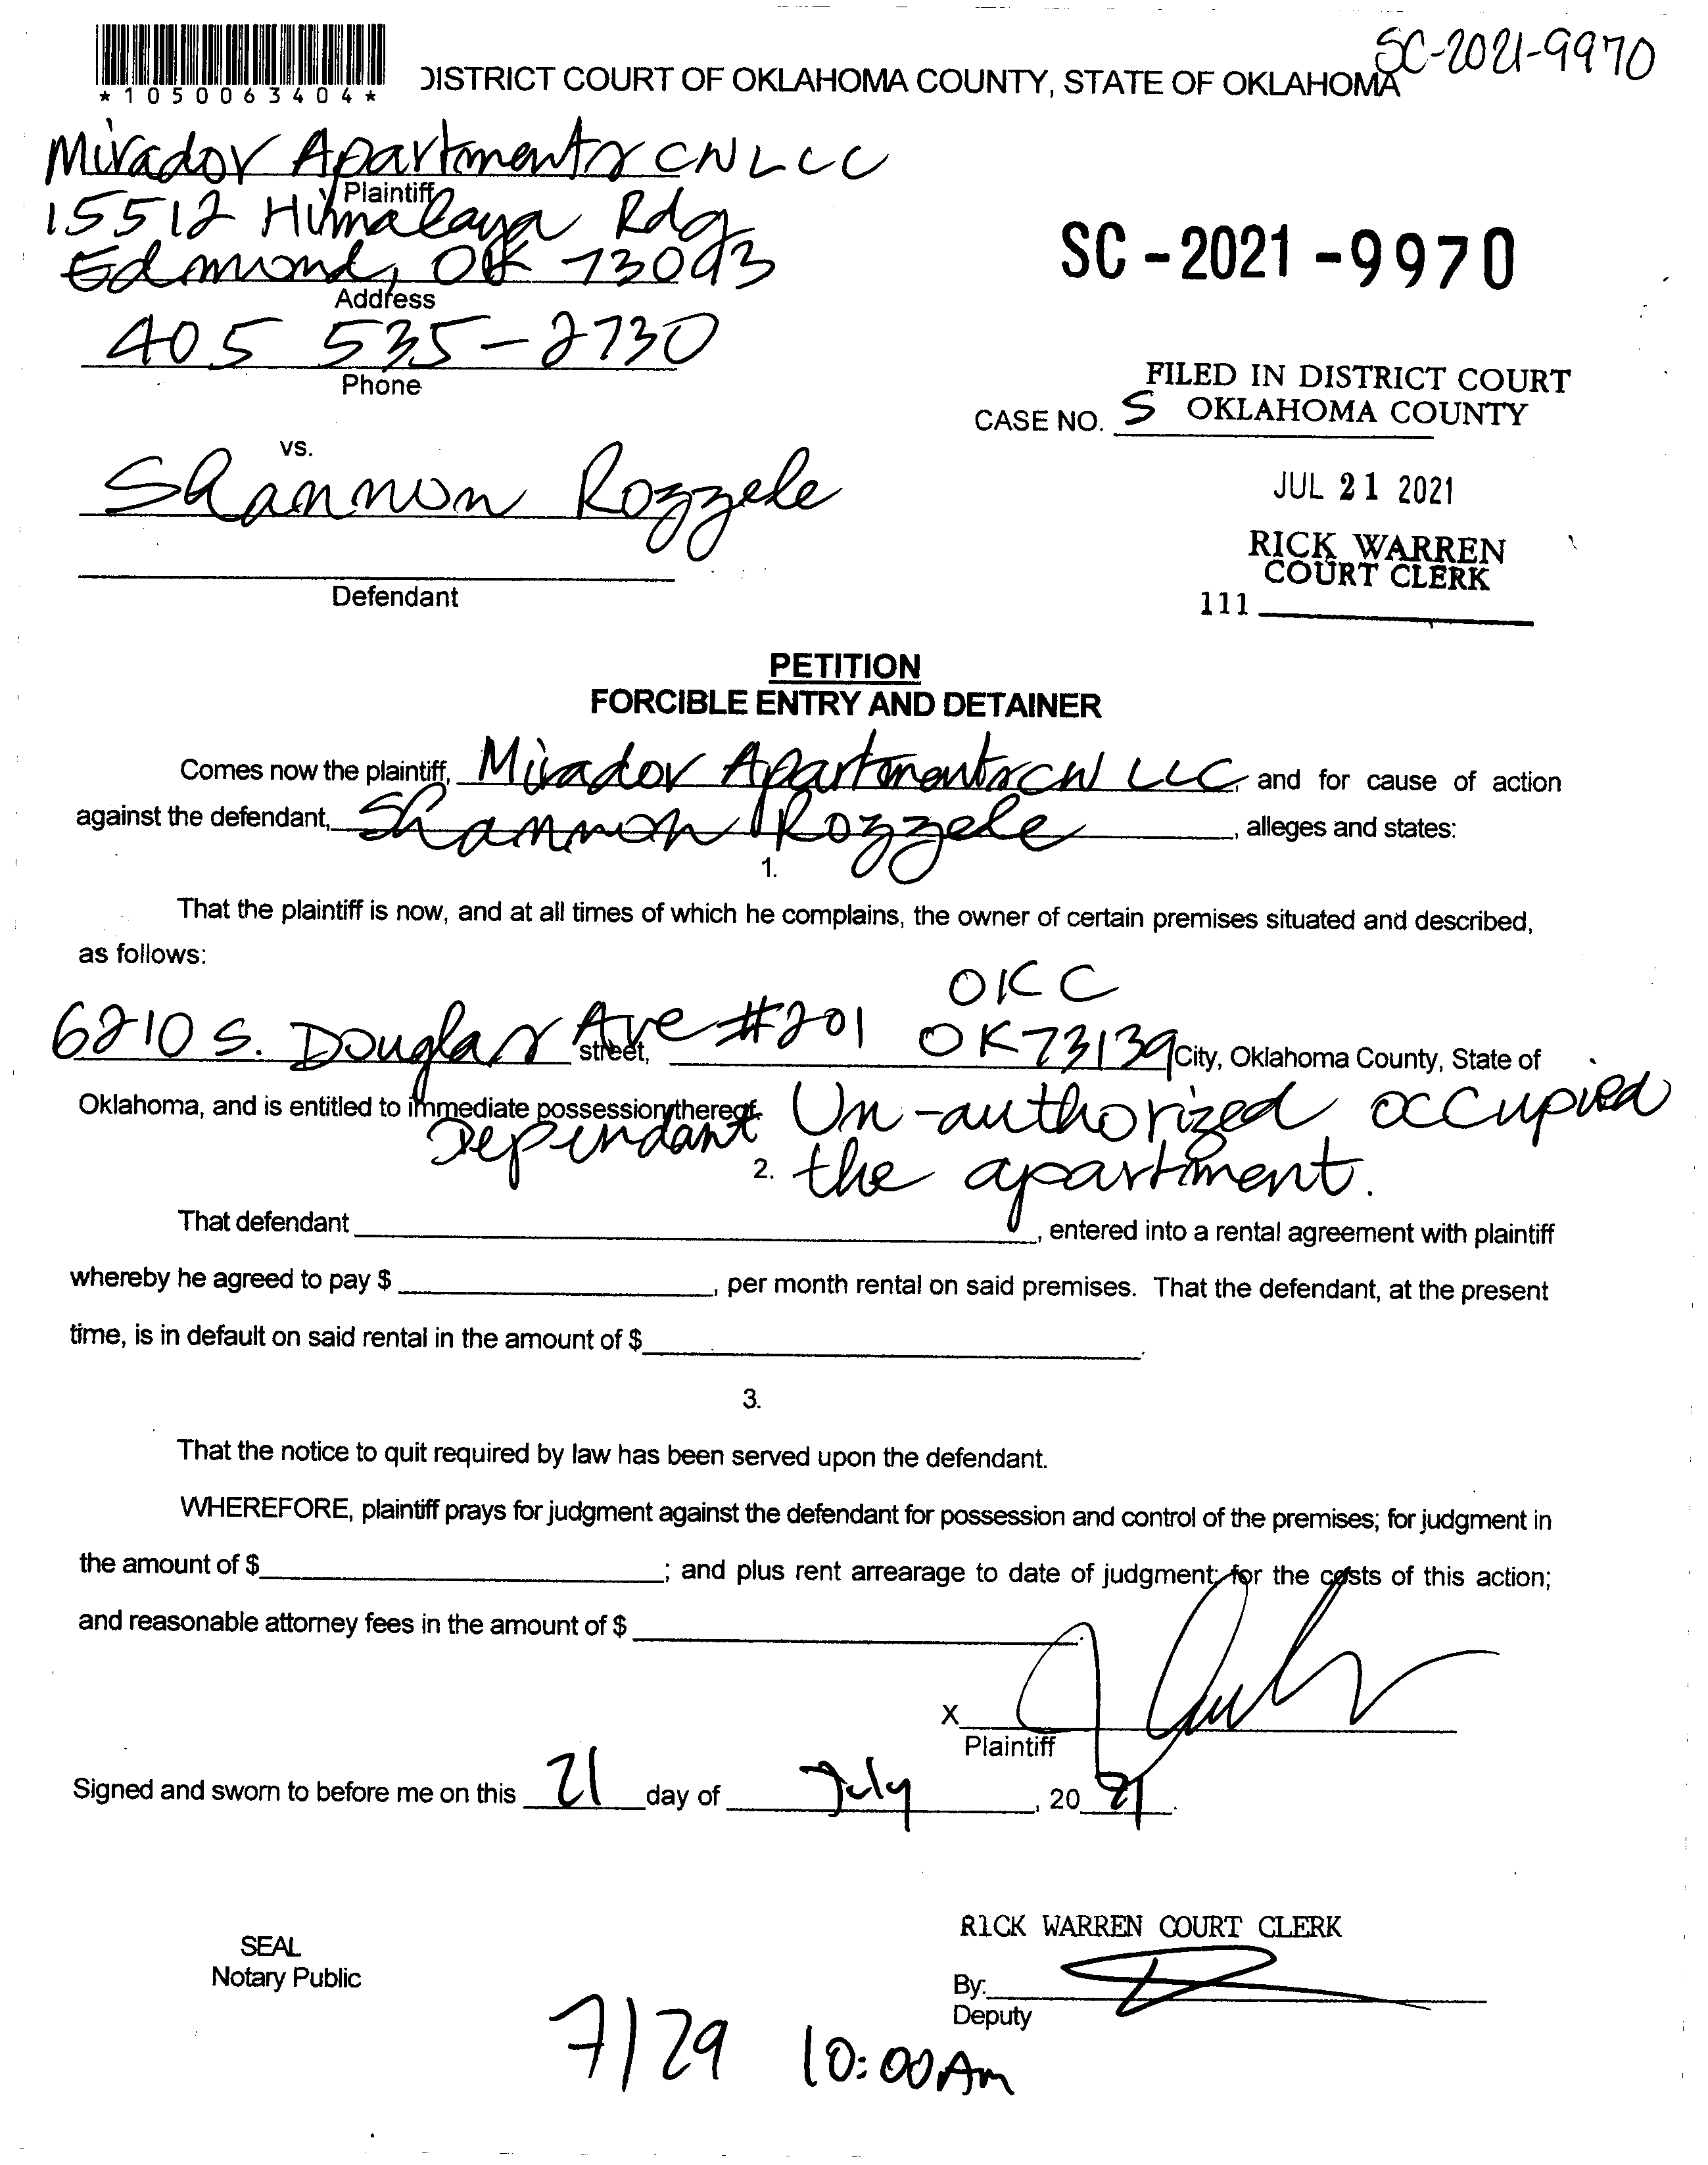 SC-2021-9970
*1050063404*
DISTRICT COURT OF OKLAHOMA COUNTY, STATE OF OKLAHOMA
Mirador Apartments CN LLC
Plaintiff
15512 Himalaya Rdg
Edmond, OK 73013
Address
SC-2021-9970
405 535-2730
Phone
FILED IN DISTRICT COURT
OKLAHOMA COUNTY
CASE NO. S
vs.
Shannon Rozzele
JUL 21 2021
RICK WARREN
COURT CLERK
111
Defendant
PETITION
FORCIBLE ENTRY AND DETAINER
Comes now the plaintiff, Mirador Apartments CN LLC, and for cause of action
against the defendant, Shannon Rozzele, alleges and states:
1.
That the plaintiff is now, and at all times of which he complains, the owner of certain premises situated and described,
as follows:
OKC
6210 S. Douglas Ave #201 OK 73139
street, City, Oklahoma County, State of
Oklahoma, and is entitled to immediate possession thereof.
Dependant Un-authorized occupied
2. the apartment.
That defendant , entered into a rental agreement with plaintiff
whereby he agreed to pay $ , per month rental on said premises. That the defendant, at the present
time, is in default on said rental in the amount of $ .
3.
That the notice to quit required by law has been served upon the defendant.
WHEREFORE, plaintiff prays for judgment against the defendant for possession and control of the premises; for judgment in
the amount of $ ; and plus rent arrearage to date of judgment; for the costs of this action;
and reasonable attorney fees in the amount of $ .
X
Plaintiff
Signed and sworn to before me on this 21 day of July, 20 21.
RICK WARREN COURT CLERK
SEAL
Notary Public
By:
Deputy
7/29 10:00 Am